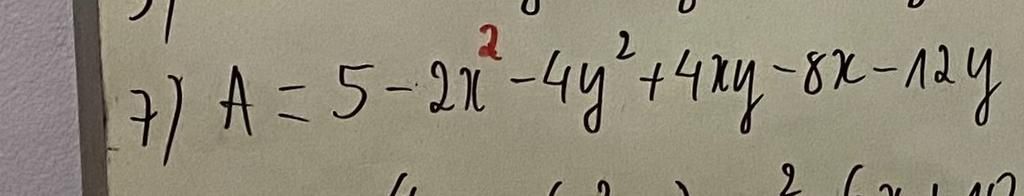 7) A = 5 - 2x² - 4y² + 4xy - 8x - 12y